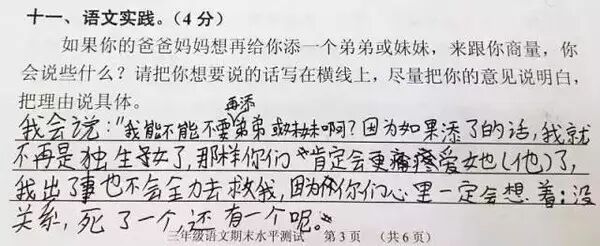 十一、语文实践。(4分)
如果你的爸爸妈妈想再给你添一个弟弟或妹妹，来跟你商量，你
会说些什么？请把你想要说的话写在横线上，尽量把你的意见说明白，
把理由说具体。
再添
我会说："我能不能不要弟弟或妹妹啊？因为如果添了的话，我就
不再是独生子女了，那样你们肯定会更疼爱她(他)了，
我出了事也不会全力去救我，因为你们心里一定会想着：没
关系，死了一个，还有一个呢。
三年级语文期末水平测试 第3页 （共6页）